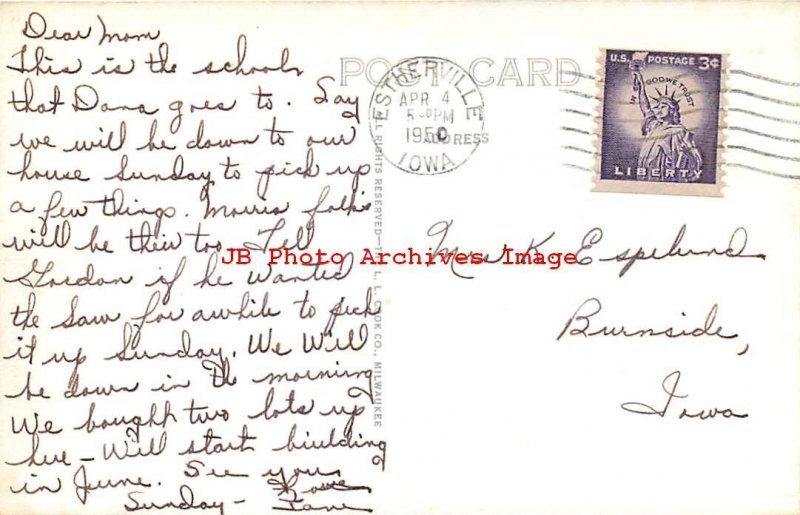 Dear Mom
This is the school
that Dana goes to. Say
we will be down to our
house Sunday to pick up
a few things. Morris folks
will be their too. Tell
Gordon if he wanted
the saw for awhile to pick
it up Sunday. We will
be down in the morning
We bought two lots up
here - Will start biulding
in June. See you
Sunday -
POST CARD
ADDRESS
ESTHERVILLE,
APR 4
PM
IOWA
U.S. POSTAGE 3¢
IN GOD WE TRUST
LIBERTY
ALL RIGHTS RESERVED
L. L. COOK CO., MILWAUKEE
JB Photo Archives Image
Mrs K Espelund
Burnside,
Iowa